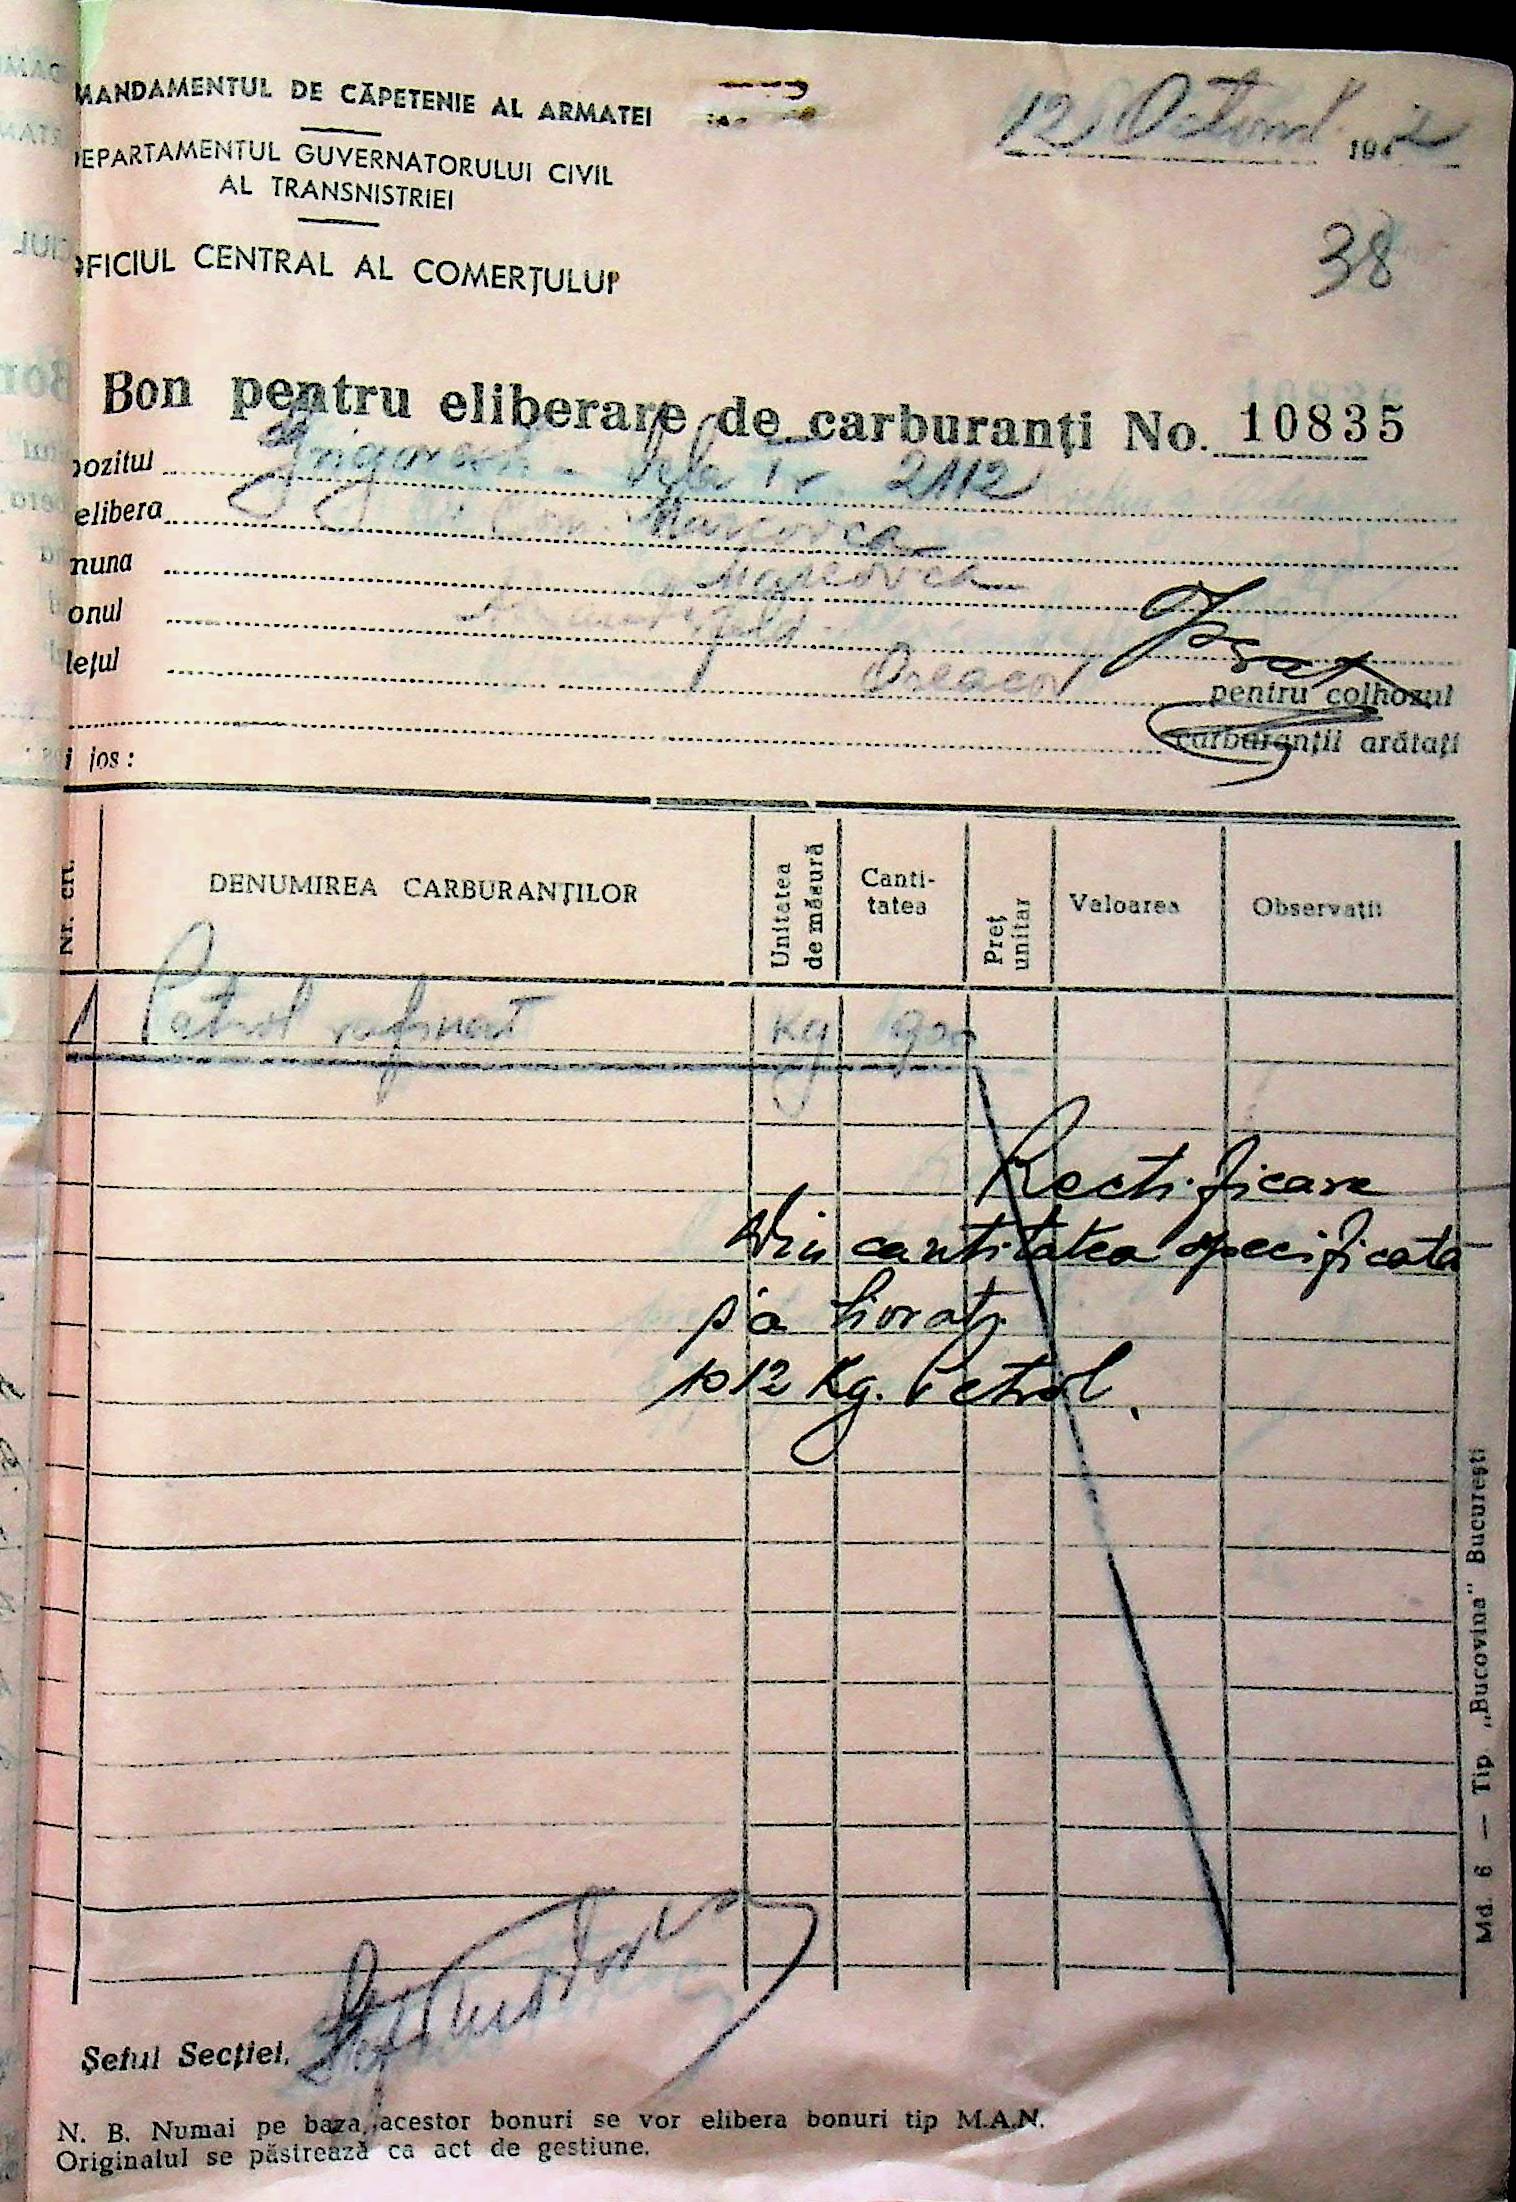 MANDAMENTUL DE CĂPETENIE AL ARMATEI
DEPARTAMENTUL GUVERNATORULUI CIVIL
AL TRANSNISTRIEI
OFICIUL CENTRAL AL COMERŢULUI
12 Octomb. 1942
38
Bon pentru eliberare de carburanţi No. 10835
pozitul 2112
elibera Com. Marcovca
muna Marcovca
onul
leţul Oceacov pentru colhozul
carburanţii arătaţi
i jos:
Nr. crt. DENUMIREA CARBURANŢILOR Unitatea de măsură Canti-tatea Preţ unitar Valoarea Observaţii
1 Petrol rafinat Kg 900
Rectificare
Din cantitatea specificata
s'a livrat
1012 Kg. Petrol.
Şeful Secţiei,
N. B. Numai pe baza acestor bonuri se vor elibera bonuri tip M.A.N.
Originalul se păstrează ca act de gestiune.
Md. 6 — Tip. „Bucovina" Bucureşti